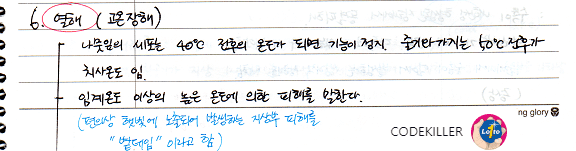 6. 열해 (고온장해)
나뭇잎의 세포는 40℃ 전후의 온도가 되면 기능이 정지. 줄기와가지는 60℃전후가
치사온도 임.
임계온도 이상의 높은 온도에 의한 피해를 말한다.
(편의상 햇빛에 노출되어 발생하는 지상부 피해를
"볕데임" 이라고 함)
ng glory
CODEKILLER
Lotto